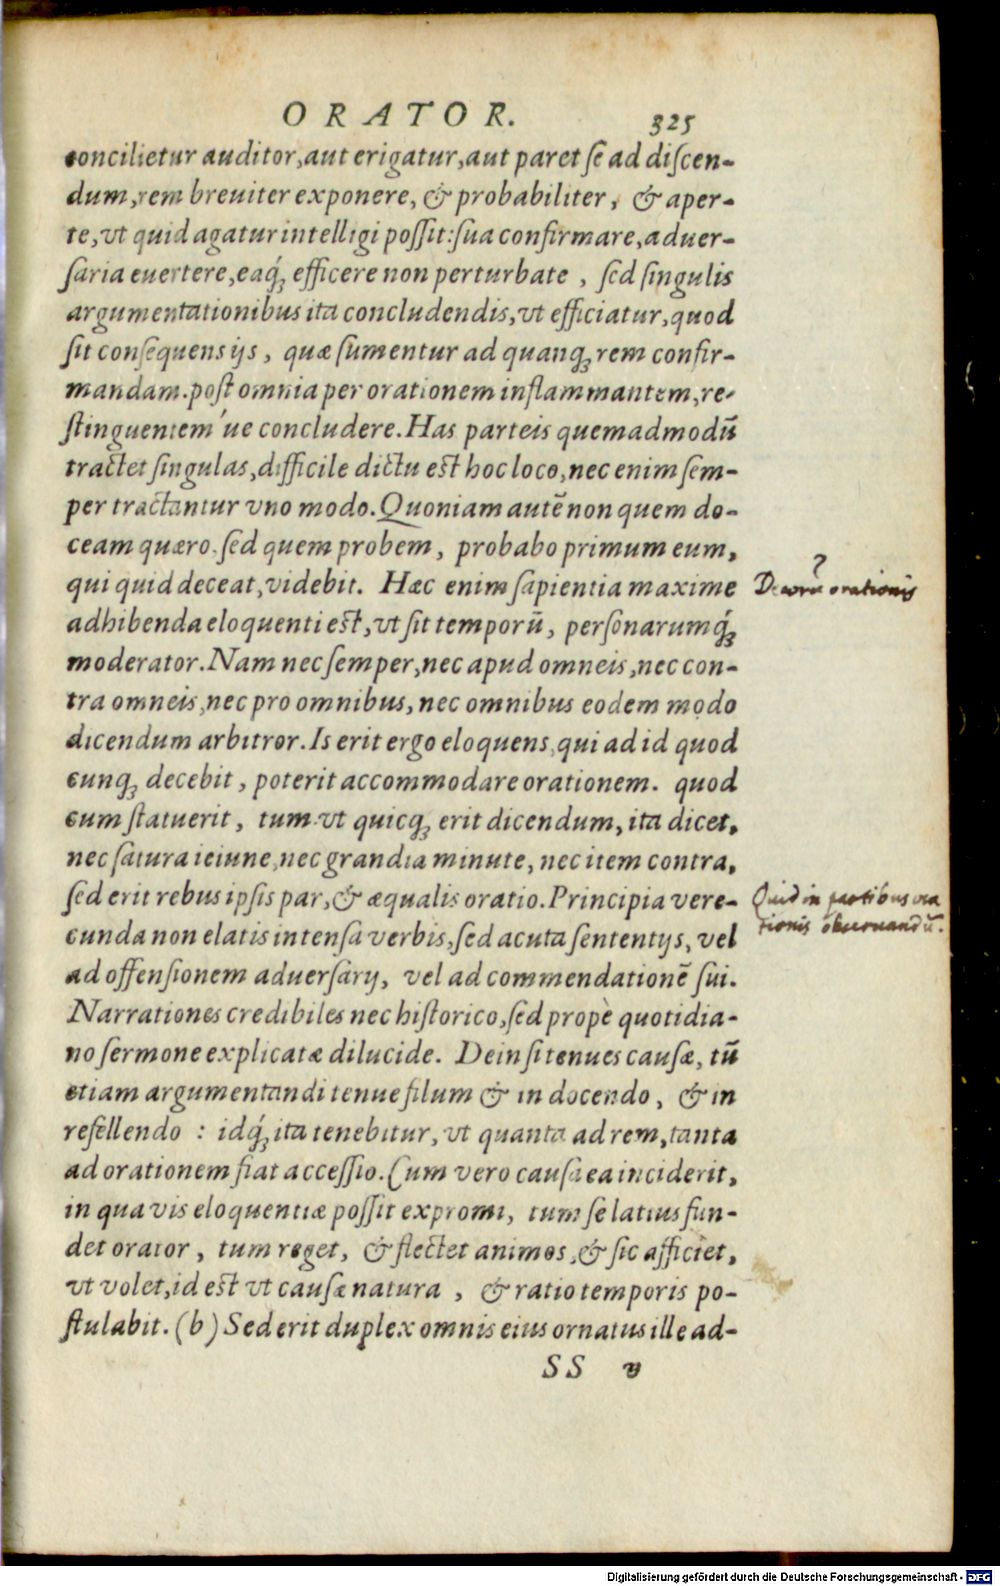 ORATOR. 325
concilietur auditor, aut erigatur, aut paret se ad discen-
dum, rem breuiter exponere, & probabiliter, & aper-
te, vt quid agatur intelligi possit: sua confirmare, aduer-
saria euertere, eaq́ꝫ efficere non perturbate, sed singulis
argumentationibus ita concludendis, vt efficiatur, quod
sit consequens ijs, quæ sumentur ad quanqꝫ rem confir-
mandam. post omnia per orationem inflammantem, re-
stinguentem´ue concludere. Has parteis quemadmodū
tractet singulas, difficile dictu est hoc loco, nec enim sem-
per tractantur vno modo. Quoniam autē non quem do-
ceam quæro, sed quem probem, probabo primum eum,
qui quid deceat, videbit. Hæc enim sapientia maxime
? Decorū orationis
adhibenda eloquenti est, vt sit temporū, personarumq́ꝫ
moderator. Nam nec semper, nec apud omneis, nec con-
tra omneis, nec pro omnibus, nec omnibus eodem modo
dicendum arbitror. Is erit ergo eloquens, qui ad id quod
cunqꝫ decebit, poterit accommodare orationem. quod
cum statuerit, tum vt quicqꝫ erit dicendum, ita dicet,
nec satura ieiune, nec grandia minute, nec item contra,
sed erit rebus ipsis par, & æqualis oratio. Principia vere-
Quid in partibus ora
tionis obseruandū.
cunda non elatis intensa verbis, sed acuta sententijs, vel
ad offensionem aduersarij, vel ad commendationē sui.
Narrationes credibiles nec historico, sed propè quotidia-
no sermone explicatæ dilucide. Dein si tenues causæ, tū
etiam argumentandi tenue filum & in docendo, & in
refellendo : idq́ꝫ ita tenebitur, vt quanta ad rem, tanta
ad orationem fiat accessio. Cum vero causa ea inciderit,
in qua vis eloquentiæ possit expromi, tum se latius fun-
det orator, tum reget, & flectet animos, & sic afficiet,
vt volet, id est vt causæ natura, & ratio temporis po-
stulabit. (b) Sed erit duplex omnis eius ornatus ille ad-
SS v
Digitalisierung gefördert durch die Deutsche Forschungsgemeinschaft - DFG